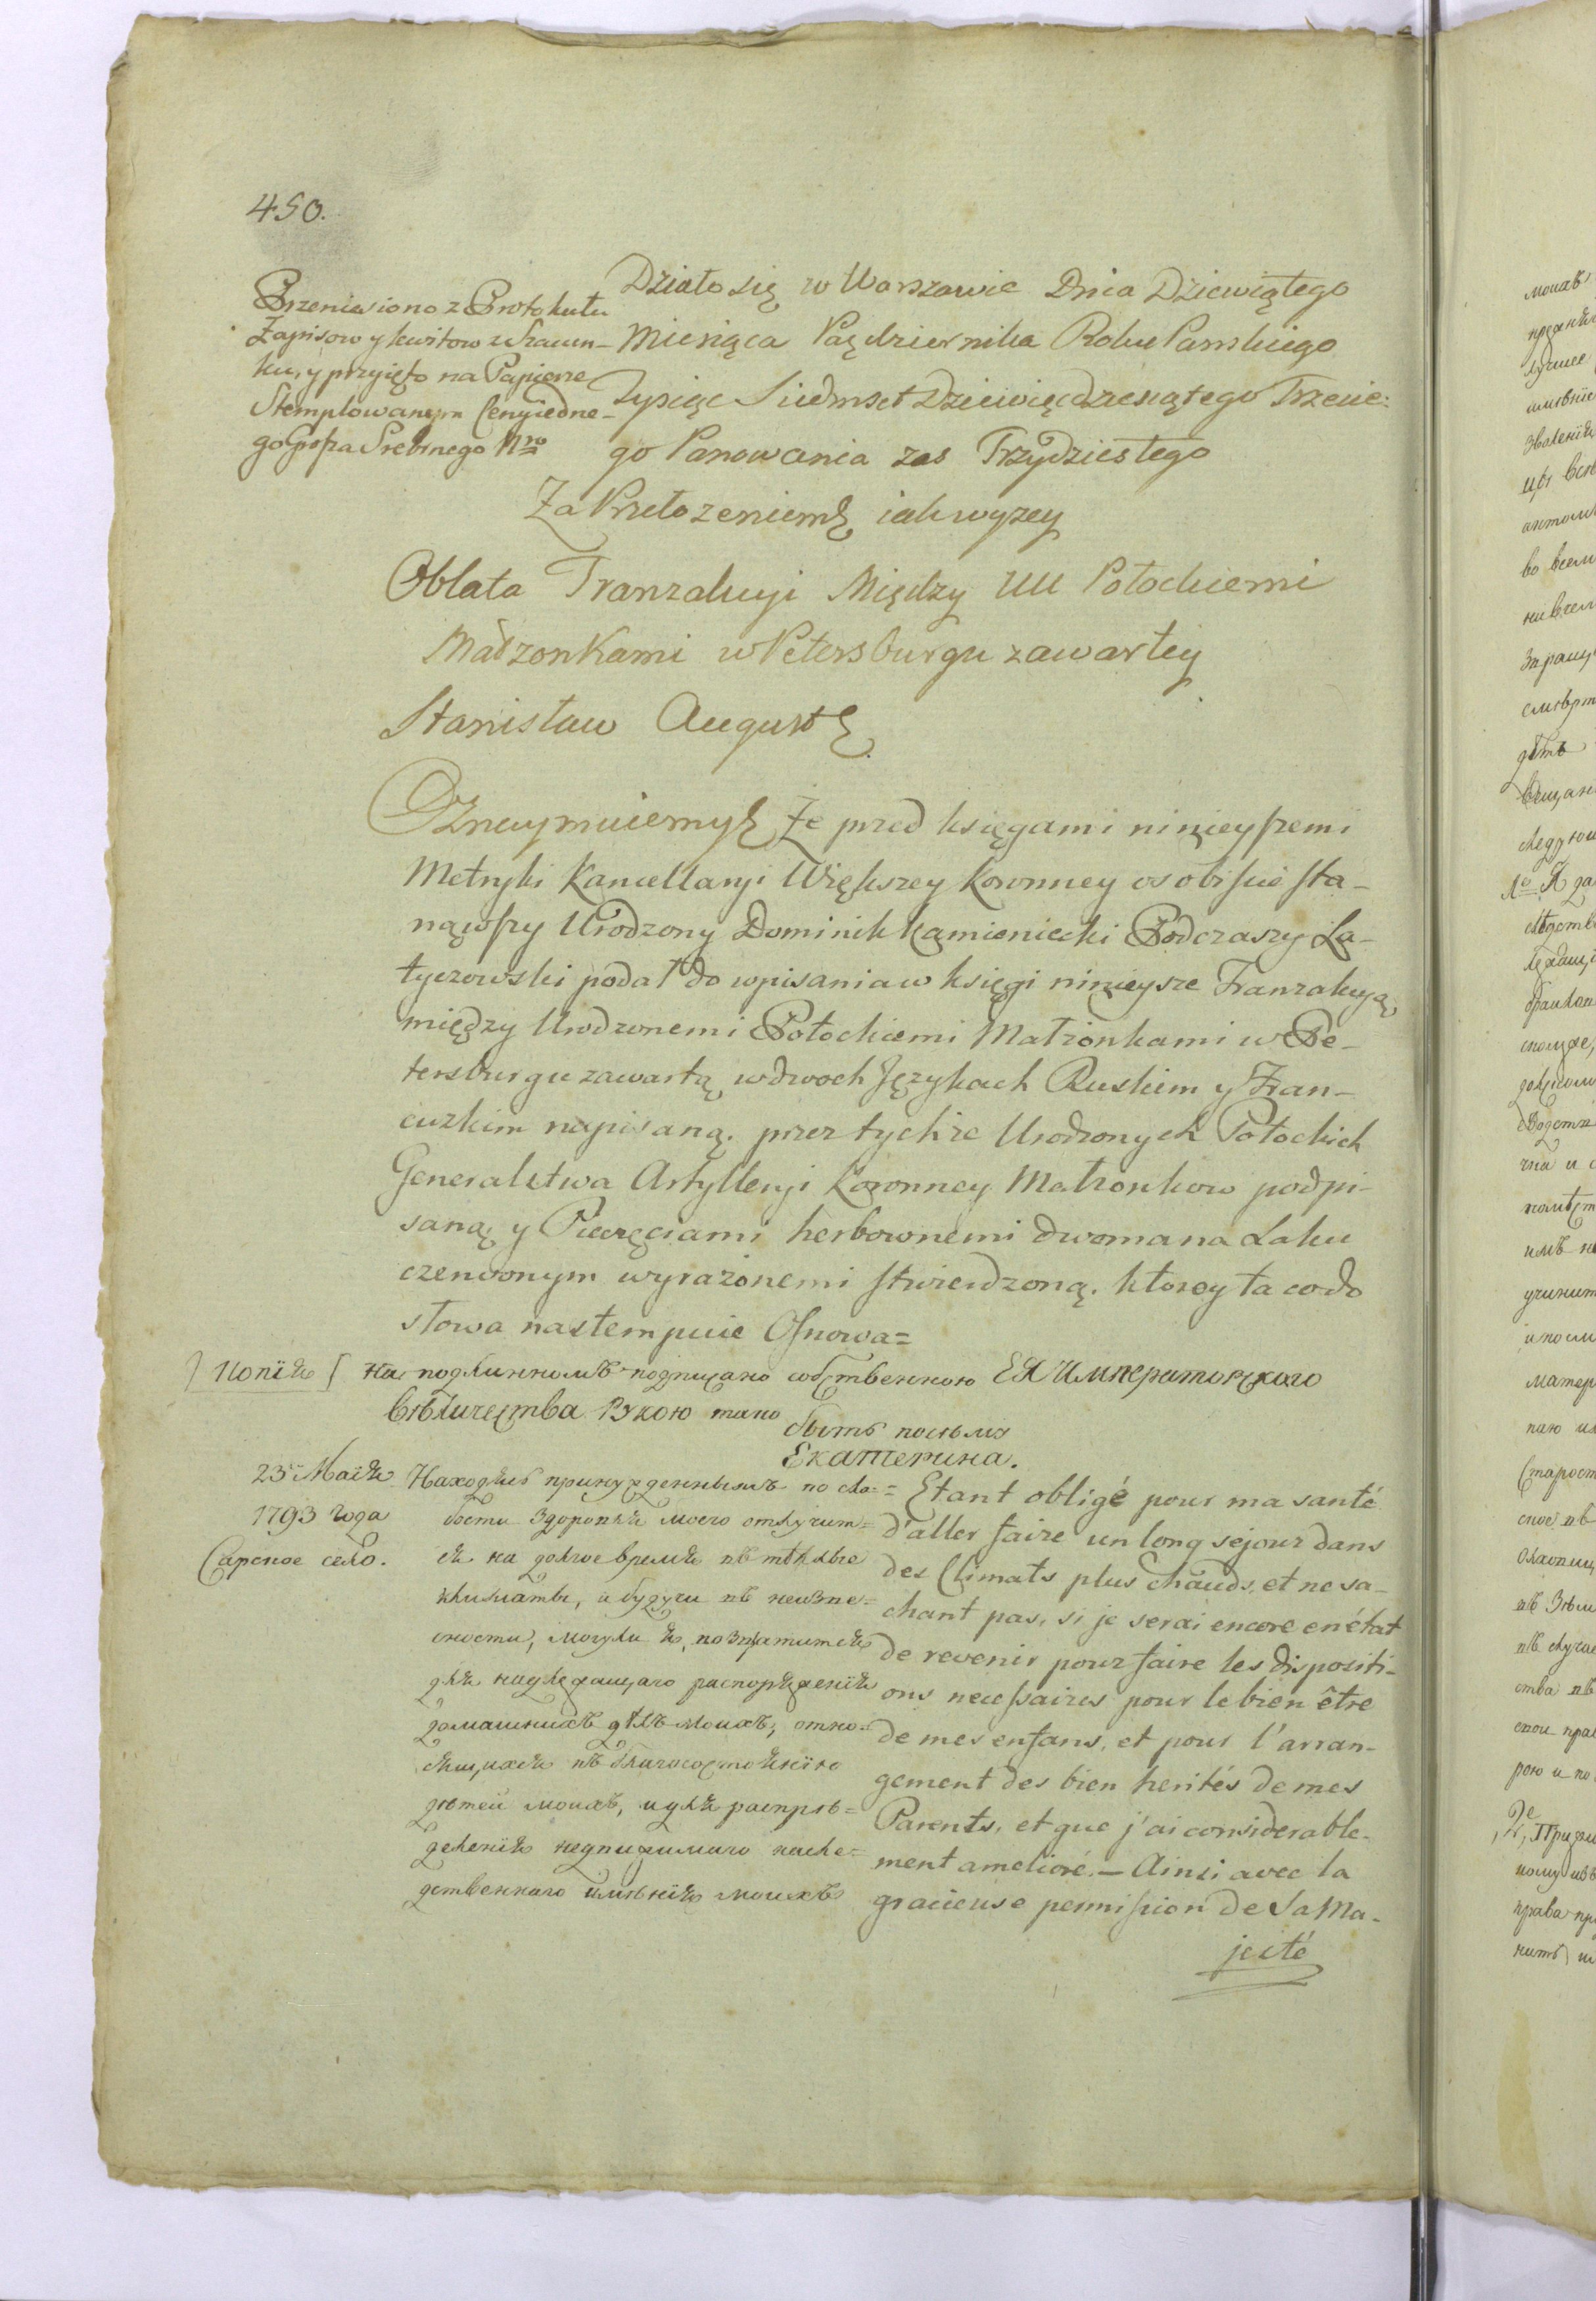 450.
Przeniesiono z Protokułu
Zapisow y kwitow w Szacun-
ku, y przyięto na Papierze
Stemplowanym Ceny iedne-
go Grosza Srebrnego Nro
Działo się w Warszawie Dnia Dziewiątego
Miesiąca Pazdziernika Roku Panskiego
Tysiąc Siedmset Dziewięcdziesiątego Trzecie-
go Panowania zas Trzydziestego
Za Przełozeniem iak wyzey
Oblata Tranzakcyi Między UU Potockiemi
Małzonkami w Petersburgu zawartey
Stanisław August
Oznaymuiemy Że przed księgami ninieyszemi
Metryki Kancellaryi Większey Koronney osobiscie sta-
nąwszy Urodzony Dominik Kamieniecki Podczaszy La-
tyczowski podał do wpisania w księgi ninieysze Tranzakcyą
między Urodzonemi Potockiemi Małżonkami w Pe-
tersburgu zawartą w dwoch Językach Ruskim y Fran-
cuzkim napisaną. przez tychże Urodzonych Potockich
Generalstwa Artylleryi Koronney Małżonkow podpi-
saną y Pieczęciami herbownemi dwoma na Laku
czerwonym wyrażonemi stwierdzoną. ktorey ta co do
słowa nastempuie Osnowa=
Копія На подлинномъ подписано собственною ЕЯ Императорскаго
Величества Рукою тако
Быть посему
Екатерина.
23 Маія
1793 года
Сарское село.
Находясь принужденнымъ по сла-
бости Здоровья моего отлучит=
ся на долгое время въ тѣплые
климаты, и будучи въ неизве=
стности, могу ли я, возвратится
для надлежащаго распоряженія
домашнихъ дѣлъ моихъ, отно=
сящихся къ благосостоянію
детей моихъ, и для распре=
деленія недвижимаго насле=
дственнаго имѣнія моихъ
= Etant obligé pour ma santé
d'aller faire un long sejour dans
des Climats plus chauds, et ne sa-
chant pas, si je serai encore en état
de revenir pour faire les dispositi-
ons necessaires pour le bien être
de mes enfans, et pour l'arran-
gement des bien herités de mes
Parents, et que j'ai considerable-
ment amelioré. — Ainsi avec la
gracieuse permission de Sa Ma-
jesté